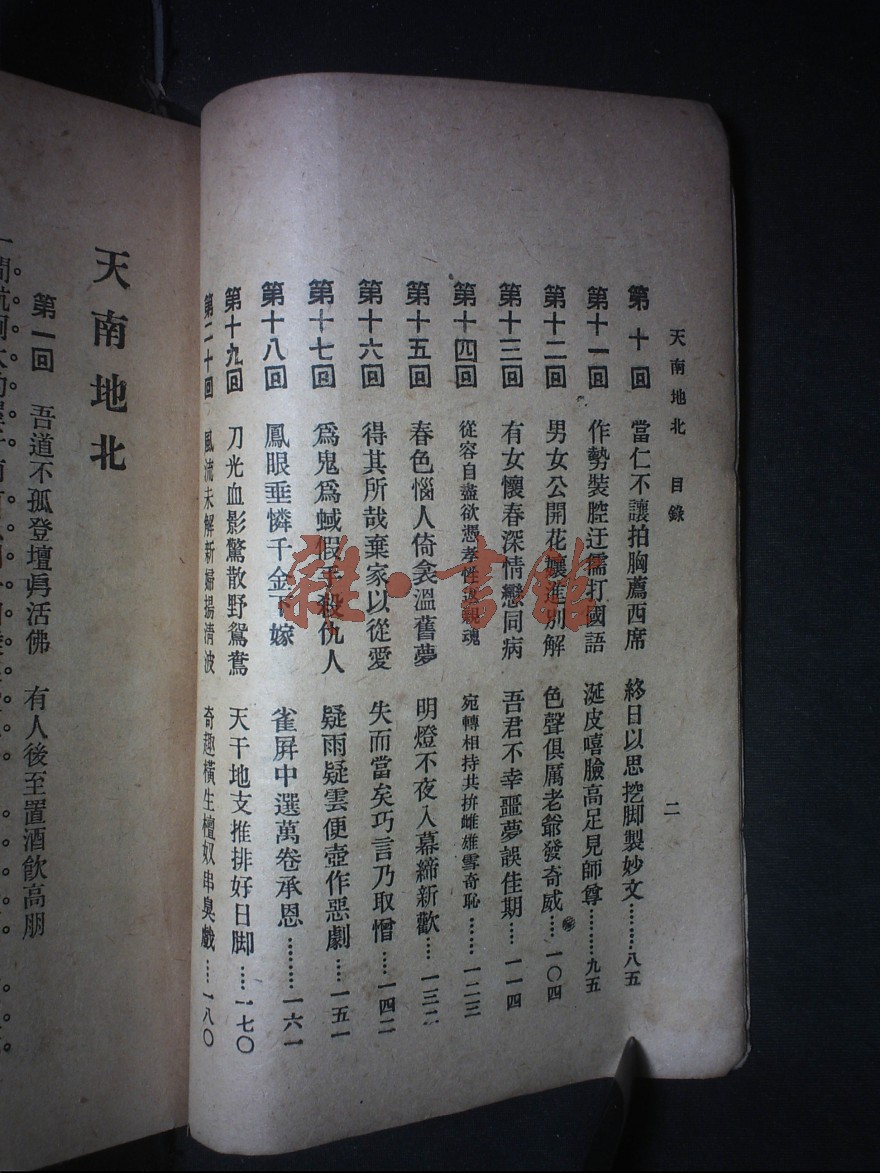 天南地北 目錄 二
第十回 當仁不讓拍胸薦西席 終日以思挖脚製妙文………八五
第十一回 作勢裝腔迂儒打國語 涎皮嘻臉高足見師尊………九五
第十二回 男女公開花孃進別解 色聲俱厲老爺發奇威……一〇四
第十三回 有女懷春深情戀同病 吾君不幸噩夢誤佳期……一一四
第十四回 從容自盡欲憑孝性返親魂 宛轉相持共拚雌雄雪奇恥………一二三
第十五回 春色惱人倚衾溫舊夢 明燈不夜入幕締新歡……一三二
第十六回 得其所哉棄家以從愛 失而當矣巧言乃取憎……一四二
第十七回 爲鬼爲蜮假手殺仇人 疑雨疑雲便壺作惡劇……一五一
第十八回 鳳眼垂憐千金下嫁 雀屏中選萬卷承恩………一六一
第十九回 刀光血影驚散野鴛鴦 天干地支推排好日脚……一七〇
第二十回 風流未解新婦揚清波 奇趣橫生檀奴串臭戲……一八〇
雜·書館
天南地北
第一回 吾道不孤登壇眞活佛 有人後至置酒飲高朋